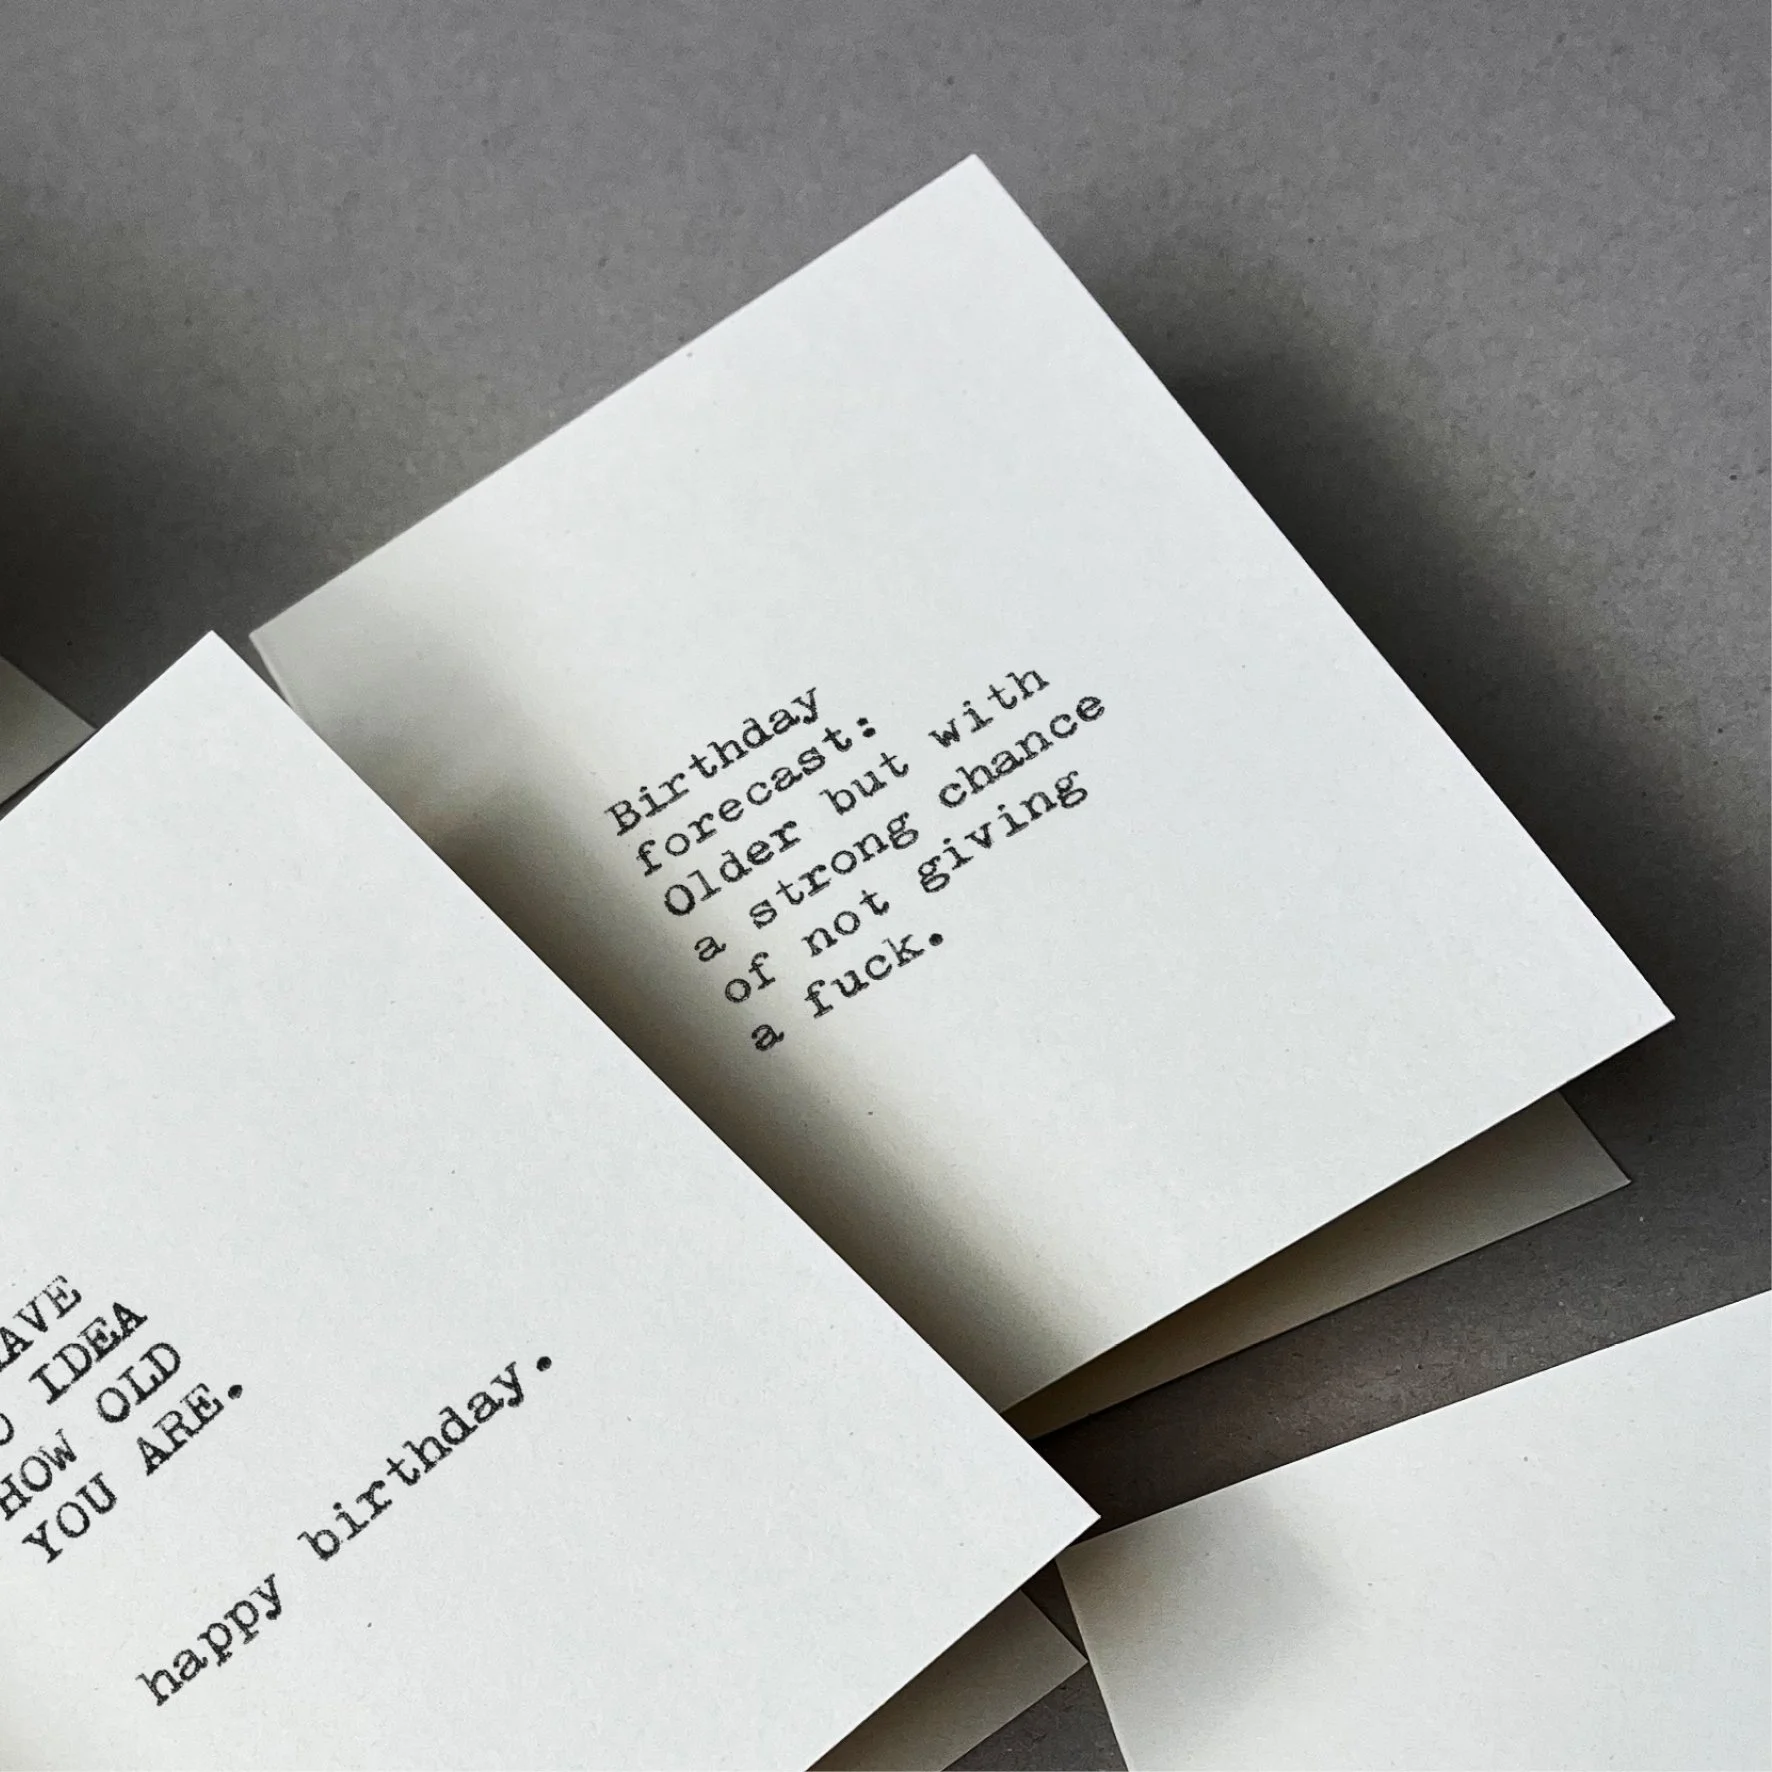 Birthday
forecast:
Older but with
a strong chance
of not giving
a fuck.
IDEA
HOW OLD
YOU ARE.
happy birthday.